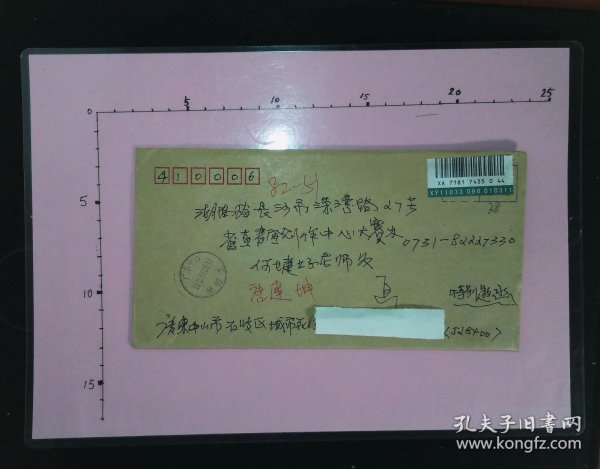 5 10 15 20 25
0
5
10
15
410006
82-51
XA 7181 7435 0 44
XY11033 090 010311
28
湖南省长沙市溁湾路27号
省直书画创作中心大赛办 0731-82227330
何建 老师收
唐建坤
特别勉函
广东中山市石岐区城市花
(528400)
孔夫子旧书网
www.kongfz.com